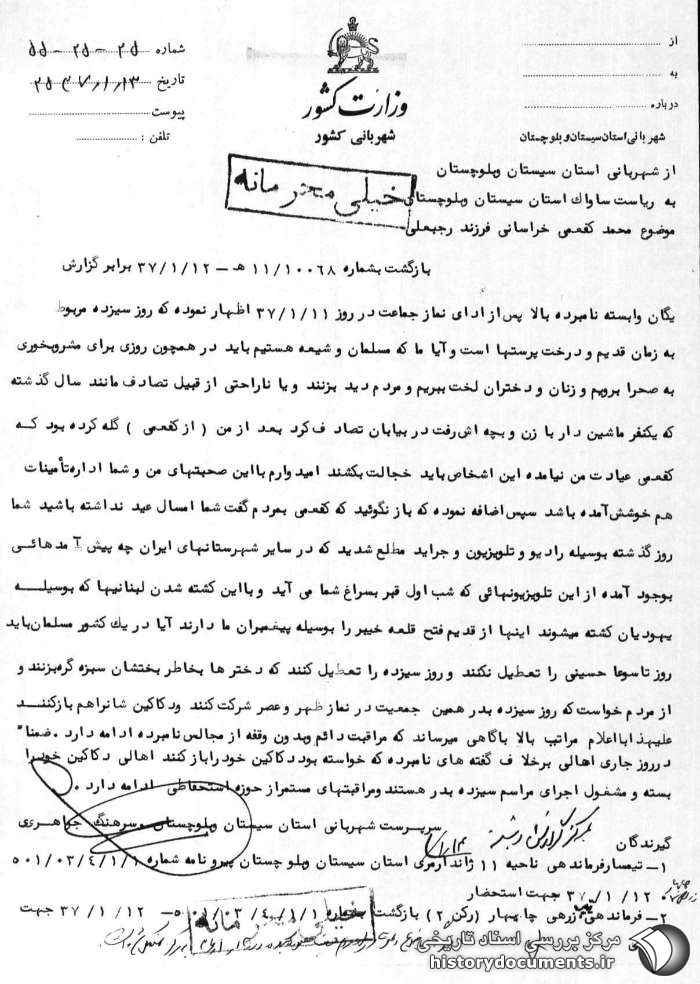 از
به
درباره
شهربانی استان سیستان و بلوچستان
وزارت کشور
شهربانی کشور
شماره ۲۵ - ۲۵ - ۵۵
تاریخ ۲۵۳۷/۱/۱۳
پیوست
تلفن :
از شهربانی استان سیستان وبلوچستان
به ریاست ساواك استان سیستان وبلوچستان
موضوع محمد کفعمی خراسانی فرزند رجبعلی
خیلی محرمانه
بازگشت بشماره ۱۱/۱۰۰۶۸ هـ - ۳۷/۱/۱۲ برابر گزارش
یگان وابسته نامبرده بالا پس از ادای نماز جماعت در روز ۳۷/۱/۱۱ اظهار نموده که روز سیزده مربوط
به زمان قدیم و درخت پرستها است و آیا ما که مسلمان و شیعه هستیم باید در همچون روزی برای مشروبخوری
به صحرا برویم و زنان و دختران لخت ببریم و مردم دید بزنند و یا ناراحتی از قبیل تصادف مانند سال گذشته
که یکنفر ماشین دار با زن و بچه اش رفت در بیابان تصادف کرد بعد از من ( از کفعمی ) گله کرده بود کـه
کفعمی عیادت من نیامده این اشخاص باید خجالت بکشند امیدوارم با این صحبتهای من و شما اداره تأمینات
هم خوشش آمده باشد سپس اضافه نموده که باز نگوئید که کفعمی بمردم گفت شما امسال عید نداشته باشید شما
روز گذشته بوسیله رادیو و تلویزیون و جراید مطلع شدید که در سایر شهرستانهای ایران چه پیش آمدهائـی
بوجود آمده از این تلویزیونهائی که شب اول قبر بسراغ شما می آید و با این کشته شدن لبنانیها که بوسیلـه
یهودیان کشته میشوند اینها از قدیم فتح قلعه خیبر را بوسیله پیغمبران ما دارند آیا در یك کشور مسلمان باید
روز تاسوعا حسینی را تعطیل نکنند و روز سیزده را تعطیل کنند که دخترها بخاطر بختشان سبزه گره بزنند و
از مردم خواست که روز سیزده بدر همین جمعیت در نماز ظهر و عصر شرکت کنند ودکاکین شانراهم بازکننـد
علیهذا با اعلام مراتب بالا باگاهی میرساند که مراقبت دائم وبدون وقفه از مجالس نامبرده ادامه دارد . ضمنا"
درروز جاری اهالی برخلاف گفته های نامبرده که خواسته بود دکاکین خودرابازکنند اهالی دکاکین خودرا
بسته و مشغول اجرای مراسم سیزده بدر هستند ومراقبتهای مستمراز حوزه استحفاظی ادامه دارد .
سرپرست شهربانی استان سیستان وبلوچستان سرهنگ جواهری
گیرندگان
۱- تیمسارفرماندهی ناحیه ۱۱ ژاندارمری استان سیستان وبلوچستان پیرو نامه شماره ۵۰۱/۰۳/۴/۱/۱
۱۲/ ۱/ ۳۷ جهت استحضار
۲- فرماندهی زرهی چابهار (رکن ۲) بازگشت بشماره ۵۰۱/۰۳/۴/۱/۱- ۱۲/ ۱/ ۳۷ جهت
خیلی محرمانه
مرکز بررسی اسناد تاریخی
historydocuments.ir